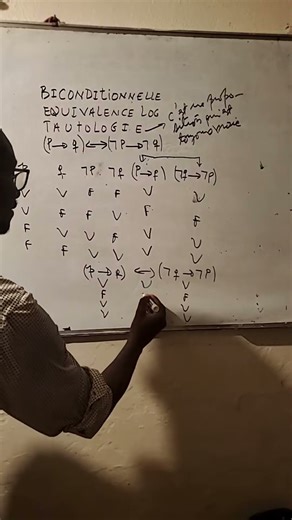 BICONDITIONNELLE
EQUIVALENCE LOG
TAUTOLOGIE → C'est une propo-
toujours vraie
(P→q)⟷(¬P→¬q)
q ¬P ¬q (P→q) (¬q→¬P)
V V F F V V
V F F V F F
F V V F V V
F F V V V V
(P→q) ⟷ (¬q→¬P)
V V V
F F
V V
V V